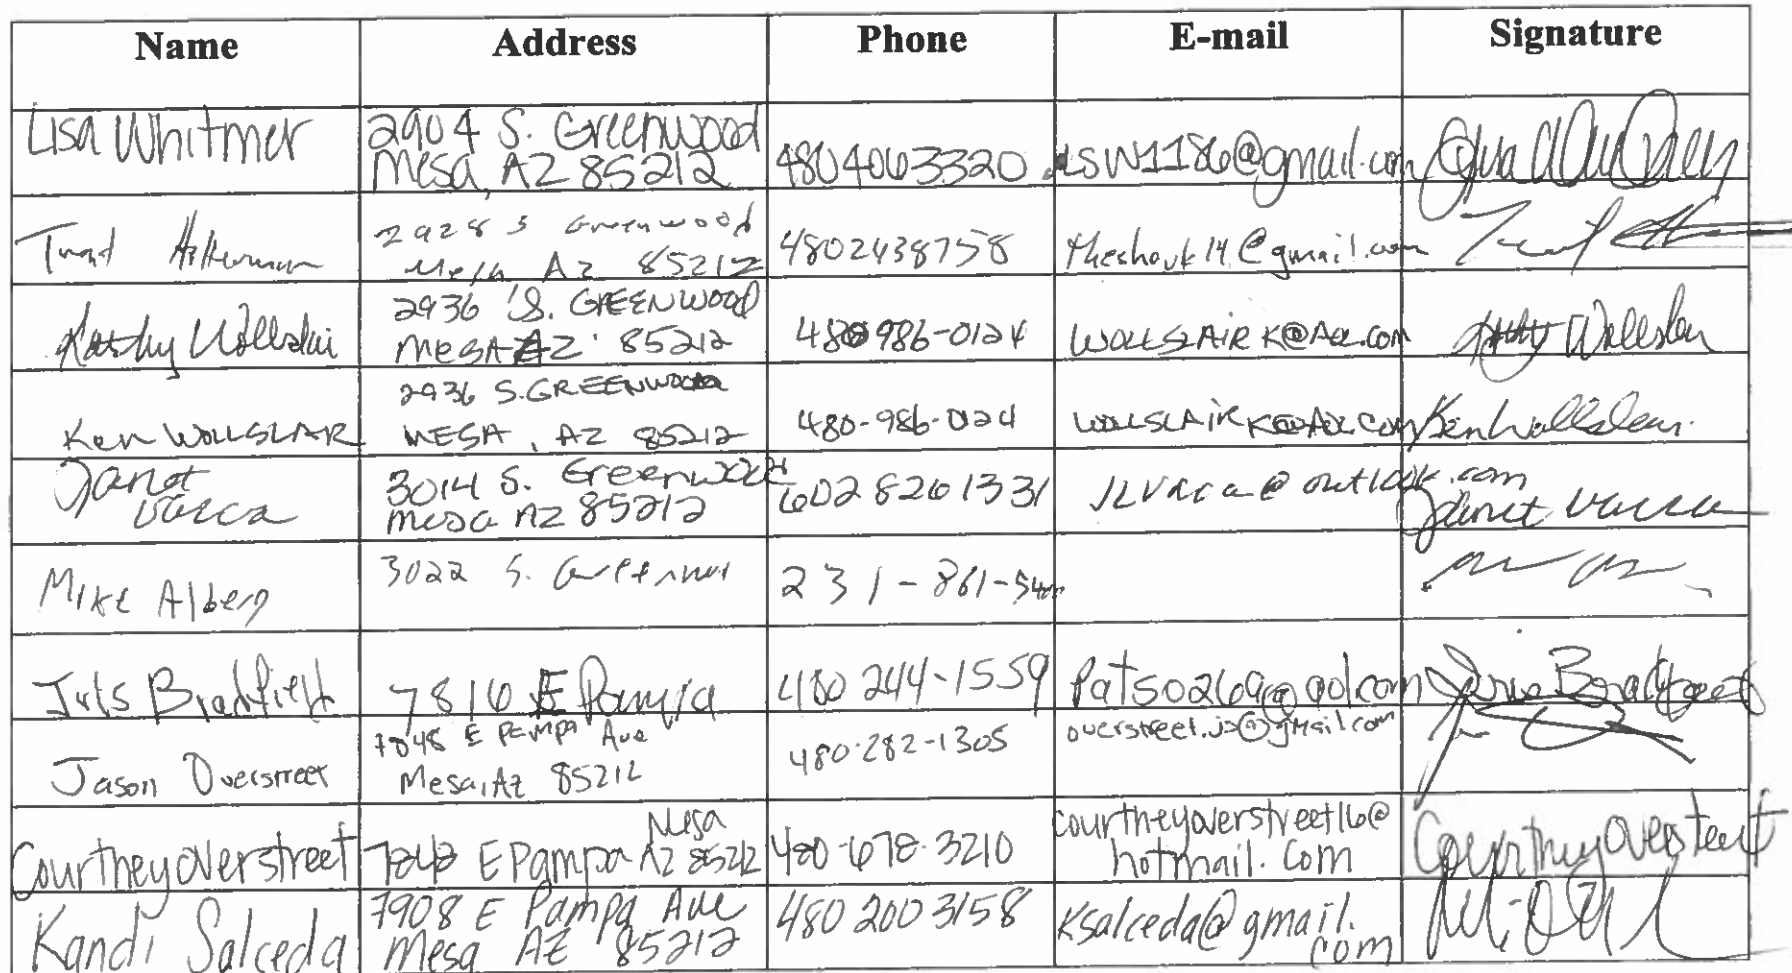 Name Address Phone E-mail Signature
Lisa Whitmer 2904 S. Greenwood
Mesa, AZ 85212 4804063320 LSW1186@gmail.com
2928 S Greenwood
Mesa AZ 85212 4802438758 @gmail.com
Kathy Wollslair 2936 S. GREENWOOD
MESA AZ 85212 480 986-0124 WOLLSLAIRK@AOL.com Kathy Wollslair
2936 S. GREENWOOD
Ken WOLLSLAIR MESA, AZ 85212 480-986-0124 WOLLSLAIRK@AOL.com Ken Wollslair
Janet
Vacca 3014 S. Greenwood
Mesa AZ 85212 602 826 1331 JLVacca@outlook.com Janet Vacca
Mike Alberg 3022 S. 231-861-
Bradfield 7816 E Pampa 480 244-1559 Patso269@aol.com
7848 E Pampa Ave
Jason Overstreet Mesa, Az 85212 480-282-1305 overstreet.js@gmail.com
Courtney Overstreet 7848 E Pampa Mesa
AZ 85212 480-678-3210 courtneyoverstreet16@
hotmail.com Courtney Overstreet
Kandi Salceda 7908 E Pampa Ave
Mesa AZ 85212 480 200 3158 Ksalceda@gmail.
com